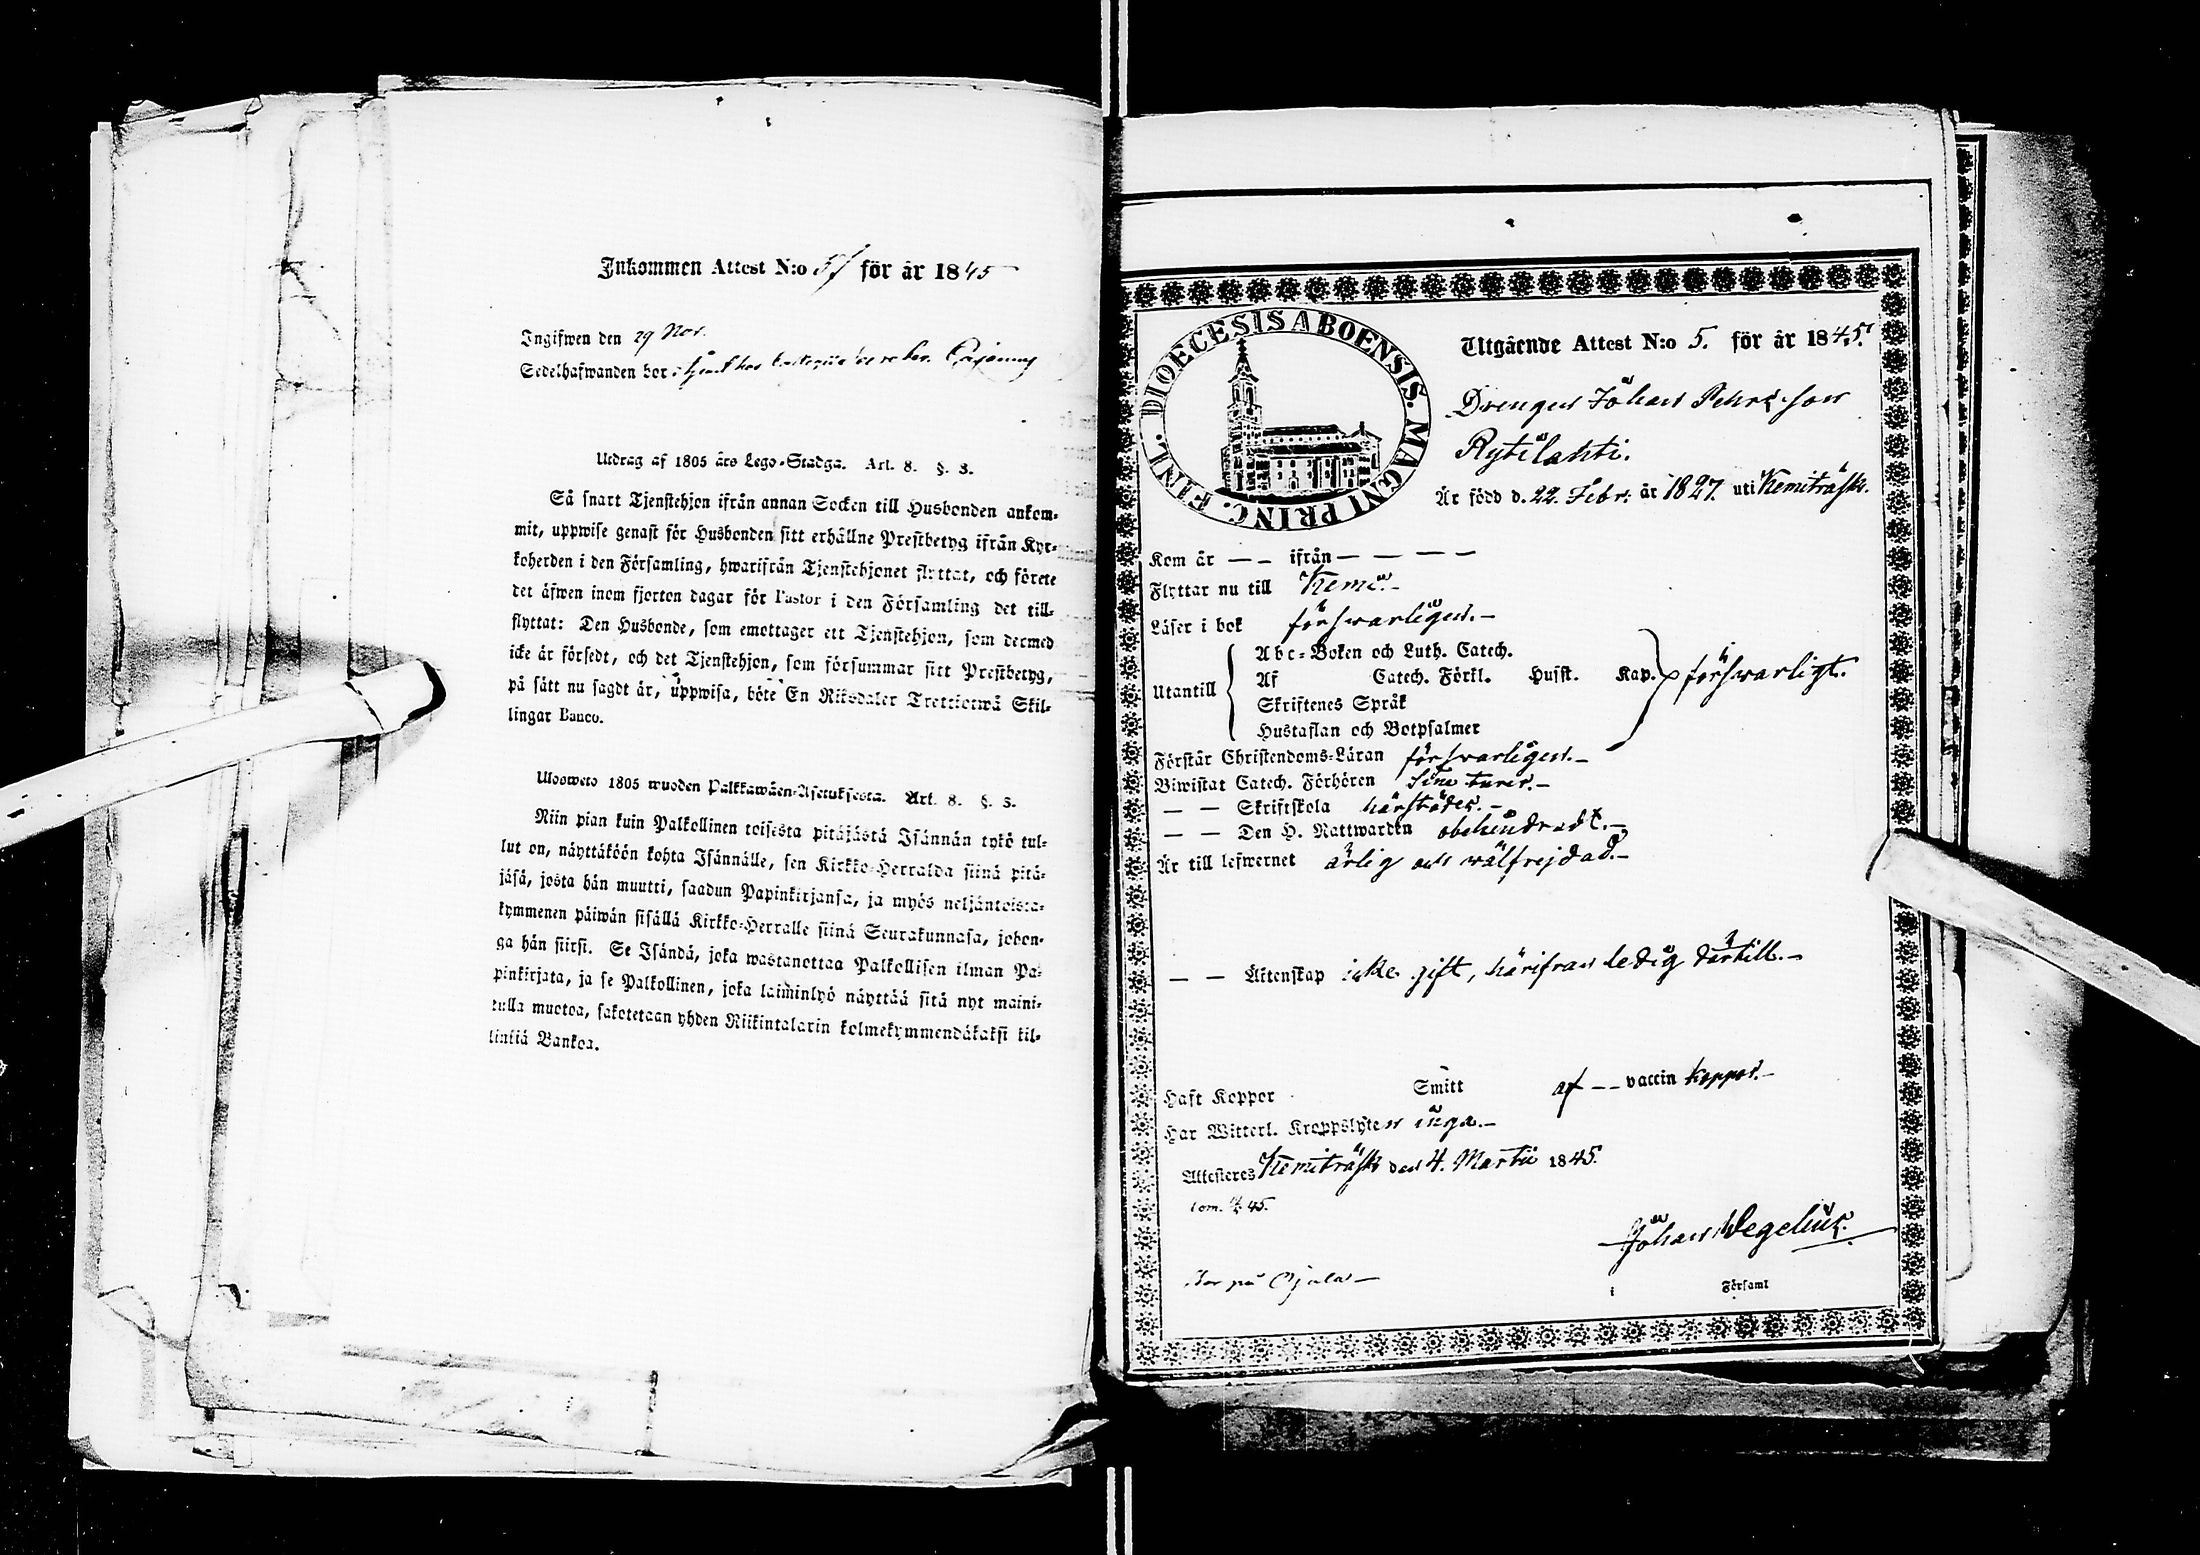 Inkommen Attest N:o 57 för år 1845
Ingifwen den 29 Nov.
Sedelhafwanden bor
Utdrag af 1805 års Lego-Stadga. Art. 8. §. 3.
Så snart Tjenstehjon ifrån annan Socken till Husbonden ankom-
mit, uppwise genast för Husbonden sitt erhållne Prestbetyg ifrån Kyr-
koherden i den Församling, hwarifrån Tjenstehjonet flyttat, och förete
det äfwen inom fjorton dagar för Pastor i den Församling det till-
flyttat: Den Husbonde, som emottager ett Tjenstehjon, som dermed
icke är försedt, och det Tjenstehjon, som försummar sitt Prestbetyg,
på sätt nu sagdt är, uppwisa, böte En Riksdaler Trettiotwå Skil-
lingar Banco.
Ulosweto 1805 wuoden Palkkawäen-Asetuksesta. Art. 8. §. 3.
Niin pian kuin Palkollinen toisesta pitäjästä Isännän tykö tul-
lut on, näyttäköön kohta Isännälle, sen Kirkko-Herralda siinä pitä-
jäsä, josta hän muutti, saadun Papinkirjansa, ja myös neljäntoista-
kymmenen päiwän sisällä Kirkko-Herralle siinä Seurakunnasa, johon-
ga hän siirsi. Se Isändä, joka wastanottaa Palkollisen ilman Pa-
pinkirjata, ja se Palkollinen, joka laiminlyö näyttää sitä nyt maini-
tulla muotoa, sakotetaan yhden Riikintalarin kolmekymmendäkaksi kil-
linkiä Bankoa.
FINL. DIOECESIS ABOENSIS. MAGNI PRINC.
Utgående Attest N:o 5. för år 1845.
Drengen Johan Pehrsson
Rytilahti.
Är född d. 22. Febr. år 1827. uti Kemiträsk.
Kom år — – ifrån — — — —
Flyttar nu till Kemi.-
Läser i bok förswarligen.-
Utantill
Abc-Boken och Luth. Catech.
Af Catech. Förkl. Husst. Kap. förswarligt.
Skriftenes Språk
Hustaflan och Botpsalmer
Förstår Christendoms-Läran förswarligen.-
Biwistat Catech. Förhören sine turer.-
— — Skriftskola härstädes.-
— — Den H. Nattwarden obehindradt.-
Är till lefwernet ärlig och wälfrejdad.-
— — Äktenskap icke gift, härifrån ledig därtill.-
Haft Koppor Smitt af — — vaccin koppor.-
Har Witterl. Kroppslyten inga.-
Attesteras Kemiträsk den 4. Martii 1845.
Johan Wegelius.
Bor på Ojala—
i Församl